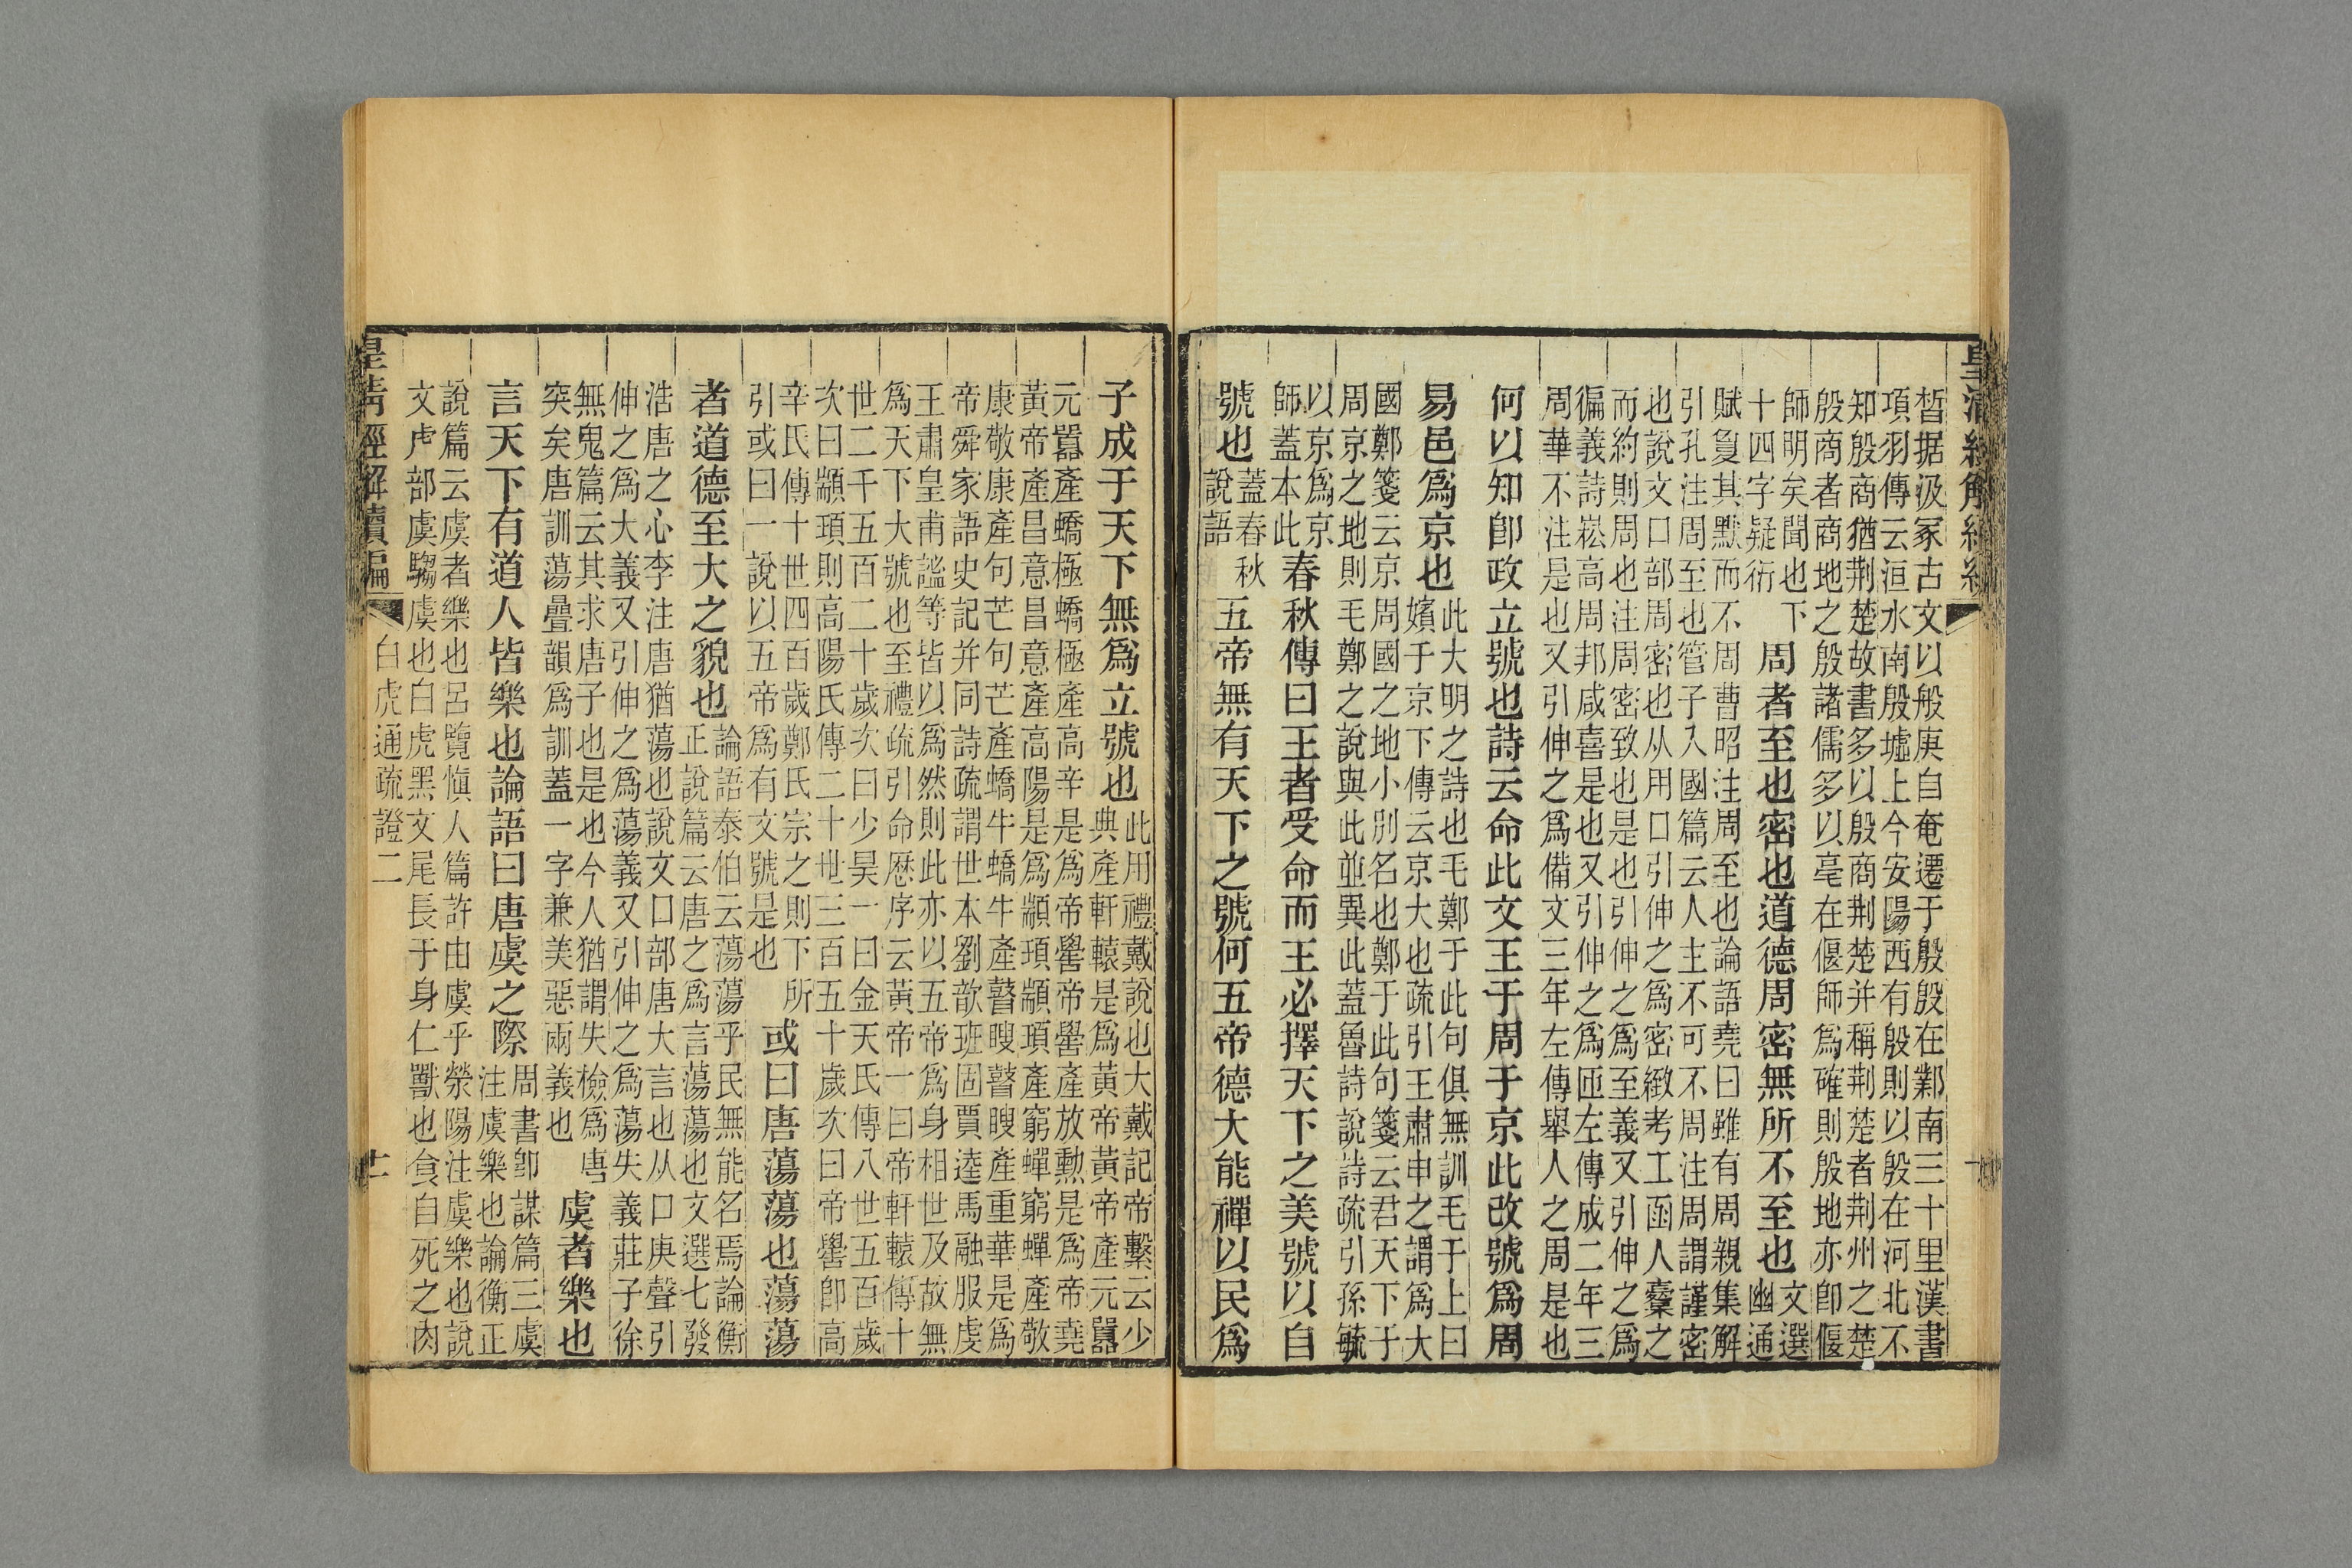 皇清經解續編
十
皙据汲冢古文以般庚自奄遷于殷殷在鄴南三十里漢書
項羽傳云洹水南殷墟上今安陽西有殷則以殷在河北不
知殷商猶荆楚故書多以殷商荆楚并稱荆楚者荆州之楚
殷商者商地之殷諸儒多以亳在偃師爲確則殷地亦卽偃
師明矣聞也下
十四字疑衍
周者至也密也道德周密無所不至也
文選
幽通
賦夐其默而不周曹昭注周至也論語堯曰雖有周親集解
引孔注周至也管子入國篇云人主不可不周注周謂謹密
也說文口部周密也从用口引伸之爲密緻考工函人櫜之
而約則周也注周密致也是也引伸之爲至義又引伸之爲
徧義詩崧高周邦咸喜是也又引伸之爲匝左傳成二年三
周華不注是也又引伸之爲備文三年左傳舉人之周是也
何以知卽政立號也詩云命此文王于周于京此改號爲周
易邑爲京也
此大明之詩也毛鄭于此句俱無訓毛于上曰
嬪于京下傳云京大也疏引王肅申之謂爲大
國鄭箋云京周國之地小別名也鄭于此句箋云君天下于
周京之地則毛鄭之說與此並異此蓋魯詩說詩疏引孫毓
以京爲京
師蓋本此
春秋傳曰王者受命而王必擇天下之美號以自
號也
蓋春秋
說語
五帝無有天下之號何五帝德大能禪以民爲
子成于天下無爲立號也
此用禮戴說也大戴記帝繫云少
典產軒轅是爲黃帝黃帝產元囂
元囂產蟜極蟜極產高辛是爲帝嚳帝嚳產放勲是爲帝堯
黃帝產昌意昌意產高陽是爲顓頊顓頊產窮蟬窮蟬產敬
康敬康產句芒句芒產蟜牛蟜牛產瞽瞍瞽瞍產重華是爲
帝舜家語史記并同詩疏謂世本劉歆班固賈逵馬融服虔
王肅皇甫謐等皆以爲然則此亦以五帝爲身相世及故無
爲天下大號也至禮疏引命厯序云黃帝一曰帝軒轅傳十
世二千五百二十歲次曰少昊一曰金天氏傳八世五百歲
次曰顓頊則高陽氏傳二十世三百五十歲次曰帝嚳卽高
辛氏傳十世四百歲鄭氏宗之則下所
引或曰一說以五帝爲有文號是也
或曰唐蕩蕩也蕩蕩
者道德至大之貌也
論語泰伯云蕩蕩乎民無能名焉論衡
正說篇云唐之爲言蕩蕩也文選七發
浩唐之心李注唐猶蕩也說文口部唐大言也从口庚聲引
伸之爲大義又引伸之爲蕩義又引伸之爲蕩失義莊子徐
無鬼篇云其求唐子也是也今人猶謂失檢爲唐
突矣唐訓蕩疊韻爲訓蓋一字兼美惡兩義也
虞者樂也
言天下有道人皆樂也論語曰唐虞之際
周書卽謀篇三虞
注虞樂也論衡正
說篇云虞者樂也呂覽愼人篇許由虞乎滎陽注虞樂也說
文虍部虞騶虞也白虎黑文尾長于身仁獸也食自死之肉
皇淸經解續編
白虎通疏證二
十一